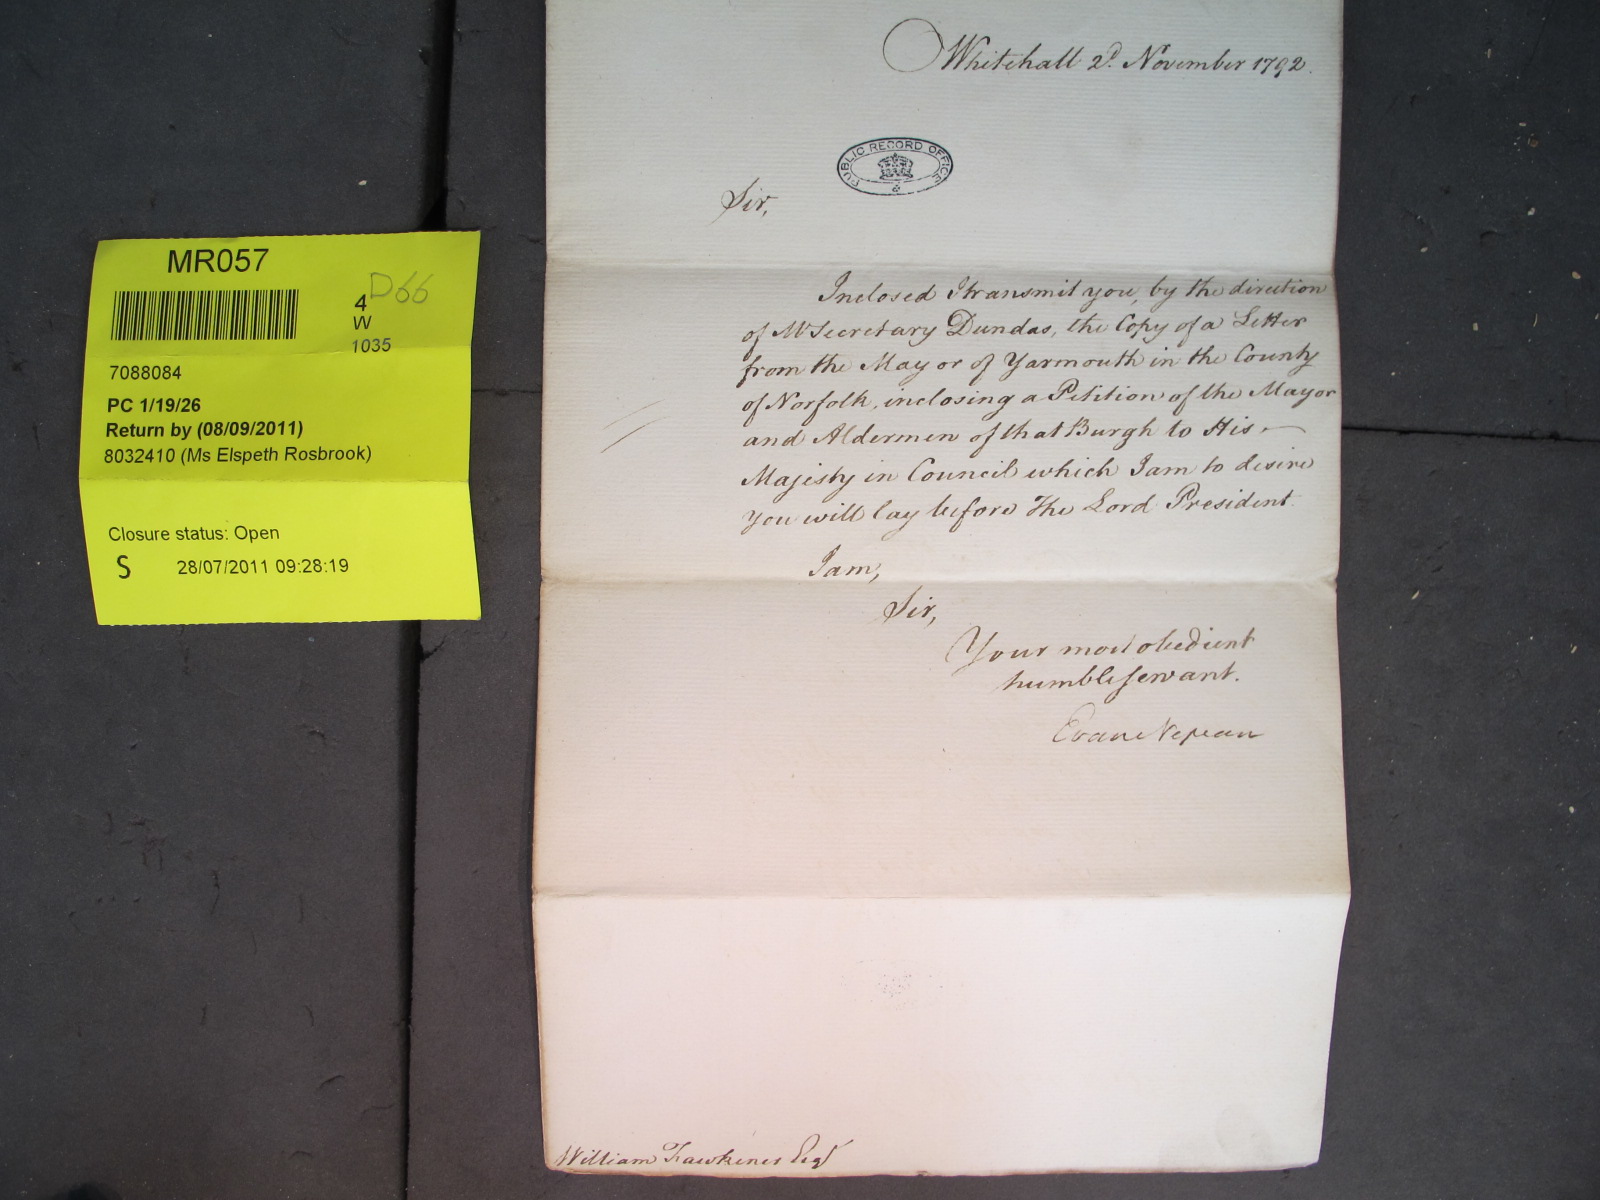 MR057
D66
4
W
1035
7088084
PC 1/19/26
Return by (08/09/2011)
8032410 (Ms Elspeth Rosbrook)
Closure status: Open
S 28/07/2011 09:28:19
Whitehall 2d November 1792.
PUBLIC RECORD OFFICE
Sir,
Inclosed I transmit you, by the direction
of Mr Secretary Dundas, the Copy of a Letter
from the Mayor of Yarmouth in the County
of Norfolk, inclosing a Petition of the Mayor
and Aldermen of that Burgh to His
Majesty in Council which I am to desire
you will lay before The Lord President.
I am,
Sir,
Your most obedient
humble servant.
Evan Nepean
William Fawkener Esqr